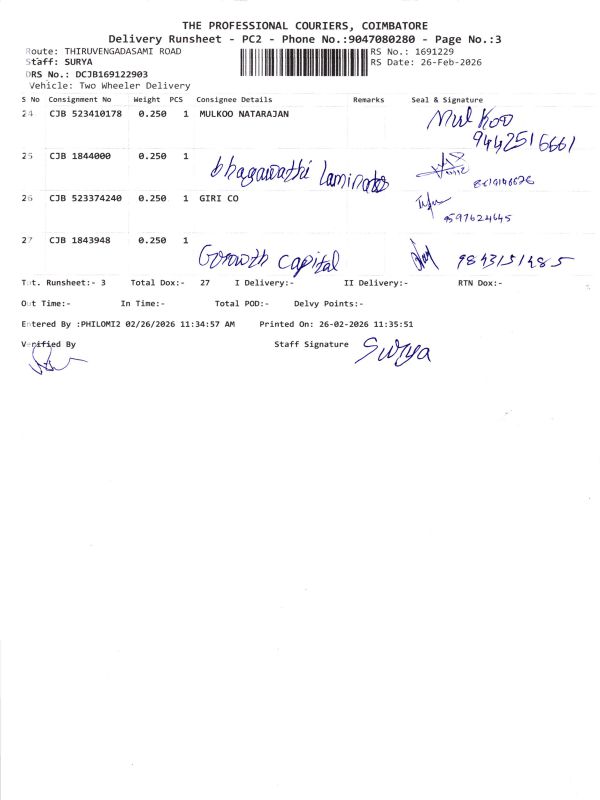 THE PROFESSIONAL COURIERS, COIMBATORE
Delivery Runsheet - PC2 - Phone No.:9047080280 - Page No.:3
Route: THIRUVENGADASAMI ROAD RS No.: 1691229
Staff: SURYA RS Date: 26-Feb-2026
DRS No.: DCJB169122903
Vehicle: Two Wheeler Delivery
S No Consignment No Weight PCS Consignee Details Remarks Seal & Signature
24 CJB 523410178 0.250 1 MULKOO NATARAJAN Mul Koo
9442516661
25 CJB 1844000 0.250 1 bhagawathi Laminates
26 CJB 523374240 0.250 1 GIRI CO
9597624645
27 CJB 1843948 0.250 1 Growth Capital 9843151485
Tot. Runsheet:- 3 Total Dox:- 27 I Delivery:- II Delivery:- RTN Dox:-
Out Time:- In Time:- Total POD:- Delvy Points:-
Entered By :PHILOMI2 02/26/2026 11:34:57 AM Printed On: 26-02-2026 11:35:51
Verified By Staff Signature Surya